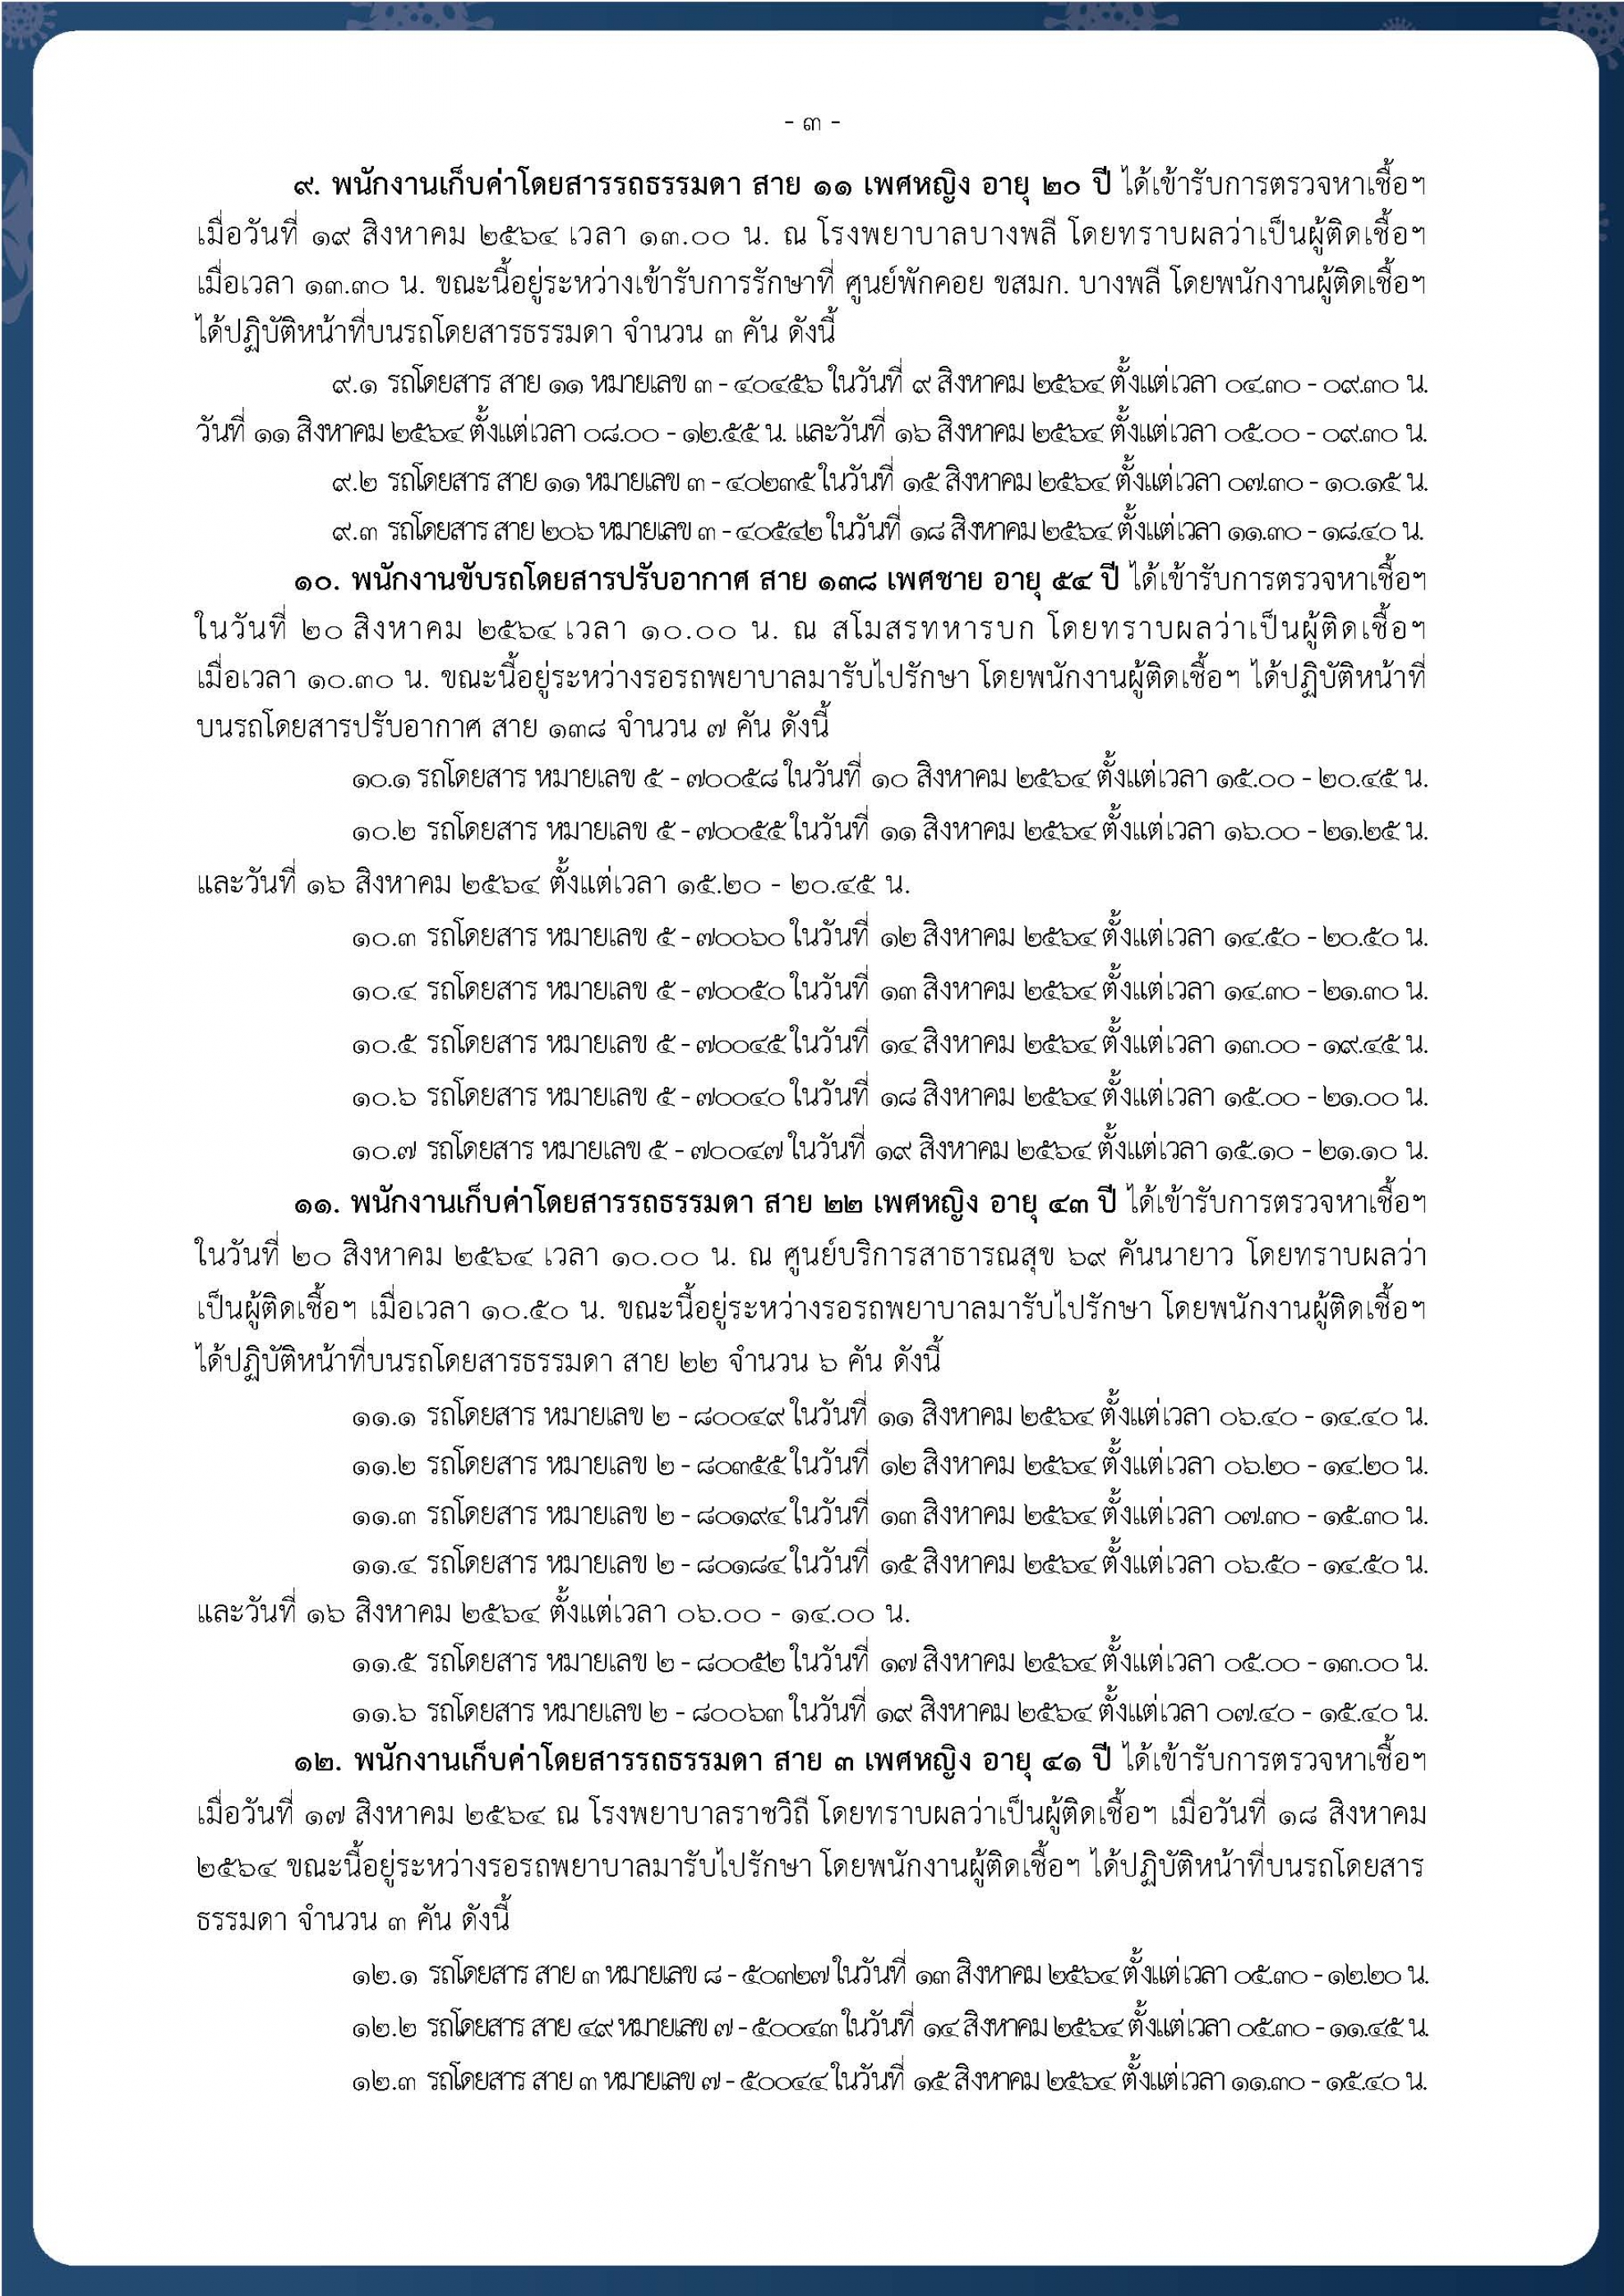 - ๓ -
๙. พนักงานเก็บค่าโดยสารรถธรรมดา สาย ๑๑ เพศหญิง อายุ ๒๐ ปี ได้เข้ารับการตรวจหาเชื้อฯ
เมื่อวันที่ ๑๙ สิงหาคม ๒๕๖๔ เวลา ๑๓.๐๐ น. ณ โรงพยาบาลบางพลี โดยทราบผลว่าเป็นผู้ติดเชื้อฯ
เมื่อเวลา ๑๓.๓๐ น. ขณะนี้อยู่ระหว่างเข้ารับการรักษาที่ ศูนย์พักคอย ขสมก. บางพลี โดยพนักงานผู้ติดเชื้อฯ
ได้ปฏิบัติหน้าที่บนรถโดยสารธรรมดา จำนวน ๓ คัน ดังนี้
๙.๑ รถโดยสาร สาย ๑๑ หมายเลข ๓ - ๔๐๔๕๖ ในวันที่ ๙ สิงหาคม ๒๕๖๔ ตั้งแต่เวลา ๐๔.๓๐ - ๐๙.๓๐ น.
วันที่ ๑๑ สิงหาคม ๒๕๖๔ ตั้งแต่เวลา ๐๘.๐๐ - ๑๒.๕๕ น. และวันที่ ๑๖ สิงหาคม ๒๕๖๔ ตั้งแต่เวลา ๐๕.๐๐ - ๐๙.๓๐ น.
๙.๒ รถโดยสาร สาย ๑๑ หมายเลข ๓ - ๔๐๒๓๕ ในวันที่ ๑๕ สิงหาคม ๒๕๖๔ ตั้งแต่เวลา ๐๗.๓๐ - ๑๐.๑๕ น.
๙.๓ รถโดยสาร สาย ๒๐๖ หมายเลข ๓ - ๔๐๕๔๒ ในวันที่ ๑๘ สิงหาคม ๒๕๖๔ ตั้งแต่เวลา ๑๑.๓๐ - ๑๘.๔๐ น.
๑๐. พนักงานขับรถโดยสารปรับอากาศ สาย ๑๓๘ เพศชาย อายุ ๕๔ ปี ได้เข้ารับการตรวจหาเชื้อฯ
ในวันที่ ๒๐ สิงหาคม ๒๕๖๔ เวลา ๑๐.๐๐ น. ณ สโมสรทหารบก โดยทราบผลว่าเป็นผู้ติดเชื้อฯ
เมื่อเวลา ๑๐.๓๐ น. ขณะนี้อยู่ระหว่างรอรถพยาบาลมารับไปรักษา โดยพนักงานผู้ติดเชื้อฯ ได้ปฏิบัติหน้าที่
บนรถโดยสารปรับอากาศ สาย ๑๓๘ จำนวน ๗ คัน ดังนี้
๑๐.๑ รถโดยสาร หมายเลข ๕ - ๗๐๐๕๘ ในวันที่ ๑๐ สิงหาคม ๒๕๖๔ ตั้งแต่เวลา ๑๕.๐๐ - ๒๐.๔๕ น.
๑๐.๒ รถโดยสาร หมายเลข ๕ - ๗๐๐๕๕ ในวันที่ ๑๑ สิงหาคม ๒๕๖๔ ตั้งแต่เวลา ๑๖.๐๐ - ๒๑.๒๕ น.
และวันที่ ๑๖ สิงหาคม ๒๕๖๔ ตั้งแต่เวลา ๑๕.๒๐ - ๒๐.๔๕ น.
๑๐.๓ รถโดยสาร หมายเลข ๕ - ๗๐๐๖๐ ในวันที่ ๑๒ สิงหาคม ๒๕๖๔ ตั้งแต่เวลา ๑๔.๕๐ - ๒๐.๕๐ น.
๑๐.๔ รถโดยสาร หมายเลข ๕ - ๗๐๐๕๐ ในวันที่ ๑๓ สิงหาคม ๒๕๖๔ ตั้งแต่เวลา ๑๔.๓๐ - ๒๑.๓๐ น.
๑๐.๕ รถโดยสาร หมายเลข ๕ - ๗๐๐๔๕ ในวันที่ ๑๔ สิงหาคม ๒๕๖๔ ตั้งแต่เวลา ๑๓.๐๐ - ๑๙.๔๕ น.
๑๐.๖ รถโดยสาร หมายเลข ๕ - ๗๐๐๔๐ ในวันที่ ๑๘ สิงหาคม ๒๕๖๔ ตั้งแต่เวลา ๑๕.๐๐ - ๒๑.๐๐ น.
๑๐.๗ รถโดยสาร หมายเลข ๕ - ๗๐๐๔๗ ในวันที่ ๑๙ สิงหาคม ๒๕๖๔ ตั้งแต่เวลา ๑๕.๑๐ - ๒๑.๑๐ น.
๑๑. พนักงานเก็บค่าโดยสารรถธรรมดา สาย ๒๒ เพศหญิง อายุ ๔๓ ปี ได้เข้ารับการตรวจหาเชื้อฯ
ในวันที่ ๒๐ สิงหาคม ๒๕๖๔ เวลา ๑๐.๐๐ น. ณ ศูนย์บริการสาธารณสุข ๖๙ คันนายาว โดยทราบผลว่า
เป็นผู้ติดเชื้อฯ เมื่อเวลา ๑๐.๕๐ น. ขณะนี้อยู่ระหว่างรอรถพยาบาลมารับไปรักษา โดยพนักงานผู้ติดเชื้อฯ
ได้ปฏิบัติหน้าที่บนรถโดยสารธรรมดา สาย ๒๒ จำนวน ๖ คัน ดังนี้
๑๑.๑ รถโดยสาร หมายเลข ๒ - ๘๐๐๔๙ ในวันที่ ๑๑ สิงหาคม ๒๕๖๔ ตั้งแต่เวลา ๐๖.๔๐ - ๑๔.๔๐ น.
๑๑.๒ รถโดยสาร หมายเลข ๒ - ๘๐๓๕๕ ในวันที่ ๑๒ สิงหาคม ๒๕๖๔ ตั้งแต่เวลา ๐๖.๒๐ - ๑๔.๒๐ น.
๑๑.๓ รถโดยสาร หมายเลข ๒ - ๘๐๑๙๔ ในวันที่ ๑๓ สิงหาคม ๒๕๖๔ ตั้งแต่เวลา ๐๗.๓๐ - ๑๕.๓๐ น.
๑๑.๔ รถโดยสาร หมายเลข ๒ - ๘๐๑๘๔ ในวันที่ ๑๕ สิงหาคม ๒๕๖๔ ตั้งแต่เวลา ๐๖.๕๐ - ๑๔.๕๐ น.
และวันที่ ๑๖ สิงหาคม ๒๕๖๔ ตั้งแต่เวลา ๐๖.๐๐ - ๑๔.๐๐ น.
๑๑.๕ รถโดยสาร หมายเลข ๒ - ๘๐๐๕๒ ในวันที่ ๑๗ สิงหาคม ๒๕๖๔ ตั้งแต่เวลา ๐๕.๐๐ - ๑๓.๐๐ น.
๑๑.๖ รถโดยสาร หมายเลข ๒ - ๘๐๐๖๓ ในวันที่ ๑๙ สิงหาคม ๒๕๖๔ ตั้งแต่เวลา ๐๗.๔๐ - ๑๕.๔๐ น.
๑๒. พนักงานเก็บค่าโดยสารรถธรรมดา สาย ๓ เพศหญิง อายุ ๔๑ ปี ได้เข้ารับการตรวจหาเชื้อฯ
เมื่อวันที่ ๑๗ สิงหาคม ๒๕๖๔ ณ โรงพยาบาลราชวิถี โดยทราบผลว่าเป็นผู้ติดเชื้อฯ เมื่อวันที่ ๑๘ สิงหาคม
๒๕๖๔ ขณะนี้อยู่ระหว่างรอรถพยาบาลมารับไปรักษา โดยพนักงานผู้ติดเชื้อฯ ได้ปฏิบัติหน้าที่บนรถโดยสาร
ธรรมดา จำนวน ๓ คัน ดังนี้
๑๒.๑ รถโดยสาร สาย ๓ หมายเลข ๘ - ๕๐๓๒๗ ในวันที่ ๑๓ สิงหาคม ๒๕๖๔ ตั้งแต่เวลา ๐๕.๓๐ - ๑๒.๒๐ น.
๑๒.๒ รถโดยสาร สาย ๔๙ หมายเลข ๗ - ๕๐๐๔๓ ในวันที่ ๑๔ สิงหาคม ๒๕๖๔ ตั้งแต่เวลา ๐๕.๓๐ - ๑๑.๔๕ น.
๑๒.๓ รถโดยสาร สาย ๓ หมายเลข ๗ - ๕๐๐๔๔ ในวันที่ ๑๕ สิงหาคม ๒๕๖๔ ตั้งแต่เวลา ๑๑.๓๐ - ๑๕.๔๐ น.